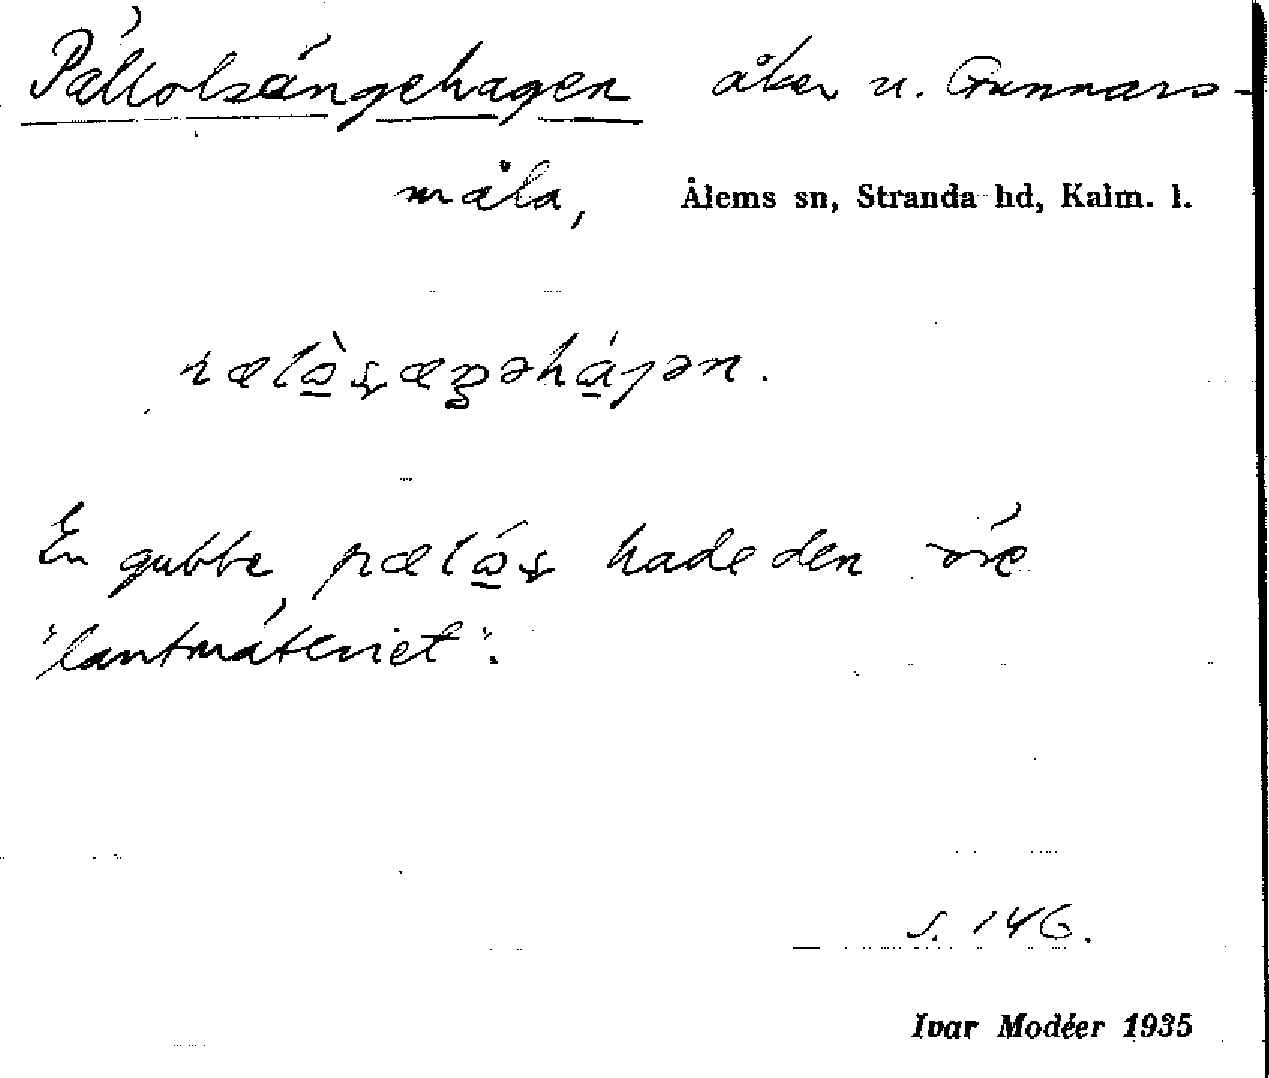 Pällolsängehagen åker u. Gunnars-
måla, Ålems sn, Stranda hd, Kalm. l.
En gubbe, hade den före
"lantmäteriet".
s. 146.
Ivar Modéer 1935